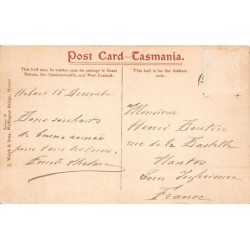 Post Card—Tasmania.
This half may be written upon for postage in Great
Britain, the Commonwealth, and New Zealand.
This half is to be for the Address
only.
J. Walch & Sons, Wellington Bridge, Hobart
Hobart 15
Bons souhaits
de bonne année
pour tous
Monsieur
Henri
rue de la Bastille
Nantes
Loire Inférieure
France